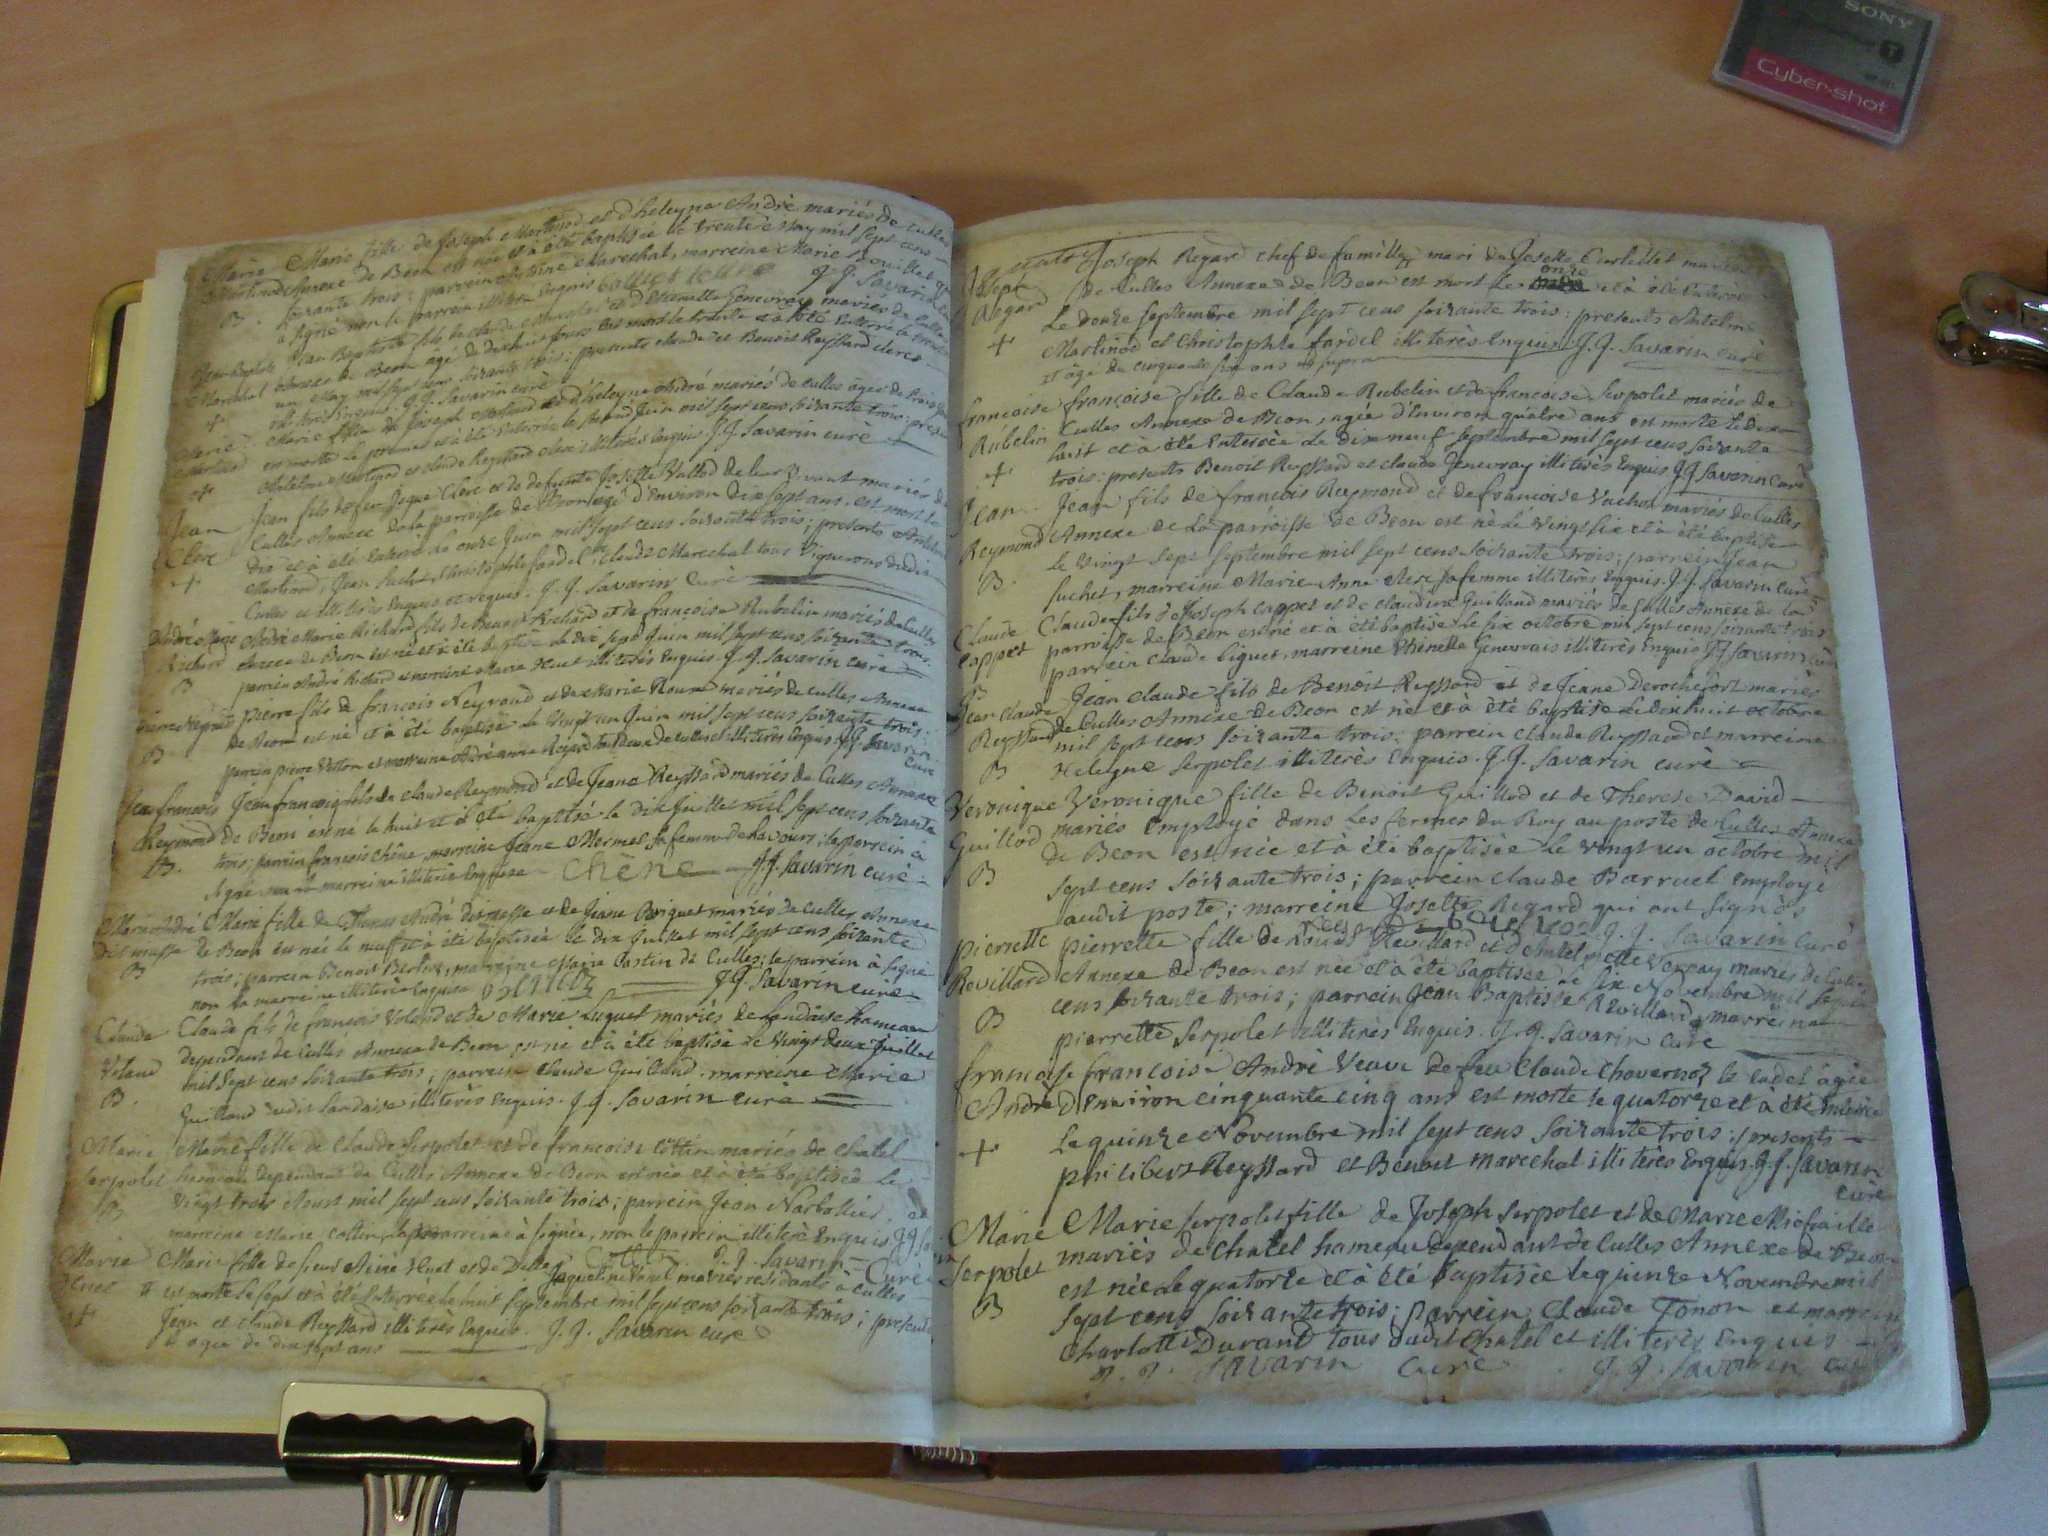 SONY
Cyber-shot
Marie Marie fille de Joseph Martinod et d'heleyne Andrè mariés de Culles
Martinod Annexe de Beon est née et à été baptisée le trente May mil sept cens
B. soixante trois; parrein Antoine Marechal, marreine Marie
à signé non le parrein illitèrè Enquis J. J. Savarin
Jean Baptiste Jean Baptiste fils de Claude Marechal et d'Etiennette Genevray mariés de Culles
Marechal Annexe de Beon agé de dixhuit jours est mort le trente et à été Enterré le trente
un May mil sept cens soixante trois: presents Claude et Benoit Reyssard clercs
+ illiterès Enquis. J. J. Savarin curè
Marie Marie fille de Joseph Martinod et d'heleyne André mariés de Culles agée de trois jours
Martinod est morte le premier et à été Enterrée le second Juin mil sept cens soixante trois: presents
+ Antelme Martinod et Claude Reyssard clerc illiterés Enquis J. J. Savarin curè
Jean Jean fils de feu Joseph Clerc et de defunte Josette Vullod de leur Vivant mariés de
Clerc Culles Annexe de la parroisse de Beon agé d'Environ dix sept ans, est mort le
+ dix et à été Enterré le onze Juin mil sept cens soixante trois; presents Antelme
Martinod, Jean Suchet, Christophle fardel, Claude Marechal tous Vignerons dudit
Culles et illitèrès Enquis et requis. J. J. Savarin Curè
André Marie André Marie Richard fils de Benoit Richard et de françoise Rubelin mariés de Culles
Richard Annexe de Beon est né et à été baptisé le dix sept Juin mil sept cens soixante trois.
B parrein Andre Richard et marreine Marie Huet illitèrès Enquis J. J. Savarin curè
Pierre Neyroud pierre fils de francois Neyroud et de Marie Roux mariés de Culles Annexe
B de Beon est né et à été baptisé le Vingt un Juin mil sept cens soixante trois;
parrein pierre Vetton et marreine Andréanne Regard tous deux de Culles illiterès Enquis J. J. Savarin
curè
Jean francois Jean francois fils de claude Reymond et de Jeane Reyssard mariés de Culles Annexe
Reymond de Beon est né le huit et à été baptisé le dix Juillet mil sept cens soixante
B. trois; parrein francois Chêne, marreine Jeane Mermet sa femme de Lavours; le parrein à
signé non la marreine illiterée Enquise Chêne J. J. Savarin curè
Marie André Marie fille de Thomas André dit masse et de Jeane Briquet mariés de Culles Annexe
dit masse de Beon est née le neuf et à été baptisée le dix Juillet mil sept cens soixante
B trois; parrein Benoit Berlioz, marreine Marie Pastin de Culles; le parrein à signé
non la marreine illiterée Enquise J. J. Savarin curè
Claude Claude fils de francois Voland et de Marie Luquet mariés de Landaise hameau
Voland dependant de Culles Annexe de Beon est né et à été baptisé le Vingt deux Juillet
B. mil sept cens soixante trois; parrein Claude Guilland, marreine Marie
Guilland dudit Landaise illitèrès Enquis. J. J. Savarin curè
Marie Marie fille de Claude Serpolet et de francoise Cottin mariés de Chatel
Serpolet hameau dependant de Culles Annexe de Beon est née et à été baptisée le
B vingt trois Aoust mil sept cens soixante trois; parrein Jean Narbollier, et
marreine Marie Cottin, la marreine à signée, non le parrein illitèrè Enquis
Cottin J. J. Savarin Curè
Marie Marie fille de sieur Aimé Huet et de Delle Jaqueline Verel mariés residants à Culles
Huet est morte le sept et à été Enterrée le huit septembre mil sept cens soixante trois; presents
+ Jean et Claude Reyssard illiterès Enquis. J. J. Savarin curè
agée de dix sept ans
Joseph Joseph Regard chef de famille, mari de Josette Curtillet mariés
Regard de Culles Annexe de Beon est mort le onze et à été Enterré
+ Le douze septembre mil sept cens soixante trois: presents Antelme
Martinod et Christophle fardel illiterès Enquis. J. J. Savarin curè
et agé de cinquante six ans ut supra
francoise francoise fille de Claude Rubelin et de francoise Serpolet mariés de
Rubelin Culles Annexe de Beon, agée d'Environ quatre ans est morte le dix
+ huit et à été Enterrée le dix neuf septembre mil sept cens soixante
trois: presents Benoit Reyssard et Claude Genevray illiterès Enquis J. J. Savarin curè
Jean Jean fils de francois Reymond et de francoise Vuchot mariés de Culles
Reymond Annexe de la parroisse de Beon est né le vingt six et à été baptisé
B. le vingt sept septembre mil sept cens soixante trois; parrein Jean
Suchet, marreine Marie Anne Clerc sa femme illitères Enquis. J. J. Savarin curè
Claude Claude fils de Joseph Cappet et de Claudine Guilland mariés de Culles Annexe de la
Cappet parroisse de Beon est né et à été baptisé le six octobre mil sept cens soixante trois
B parrein Claude Liguet, marreine Etiénette Genevrais illiterès Enquis J. J. Savarin curè
Jean Claude Jean Claude fils de Benoit Reyssard et de Jeane Derochefort mariés
Reyssard de Culles Annexe de Beon est né et à été baptisé le dix huit octobre
B mil sept cens soixante trois; parrein Claude Reyssard et marreine
Heleyne Serpolet illiterès Enquis. J. J. Savarin curè
Veronique Veronique fille de Benoit Guillod et de Therese David
Guillod mariés Employé dans les fermes du Roy au poste de Culles Annexe
B de Beon est née et à été baptisée le vingt un octobre mil
sept cens soixante trois; parrein Claude Barruel Employé
audit poste; marreine Josette Regard qui ont signés
J. J. Savarin Curè
pierrette pierrette fille de Louis Revillard et d'Antelmette Verray mariés de Culles
Revillard Annexe de Beon est née et à été baptisée le six Novembre mil sept
B cens soixante trois; parrein Jean Baptiste Revillard, marreine
pierrette Serpolet illiterès Enquis. J. J. Savarin curè
francoise francoise André Veuve de feu Claude Chavernoz le cadet agée
André d'Environ cinquante cinq ans est morte le quatorze et à été Enterrée
+ Le quinze Novembre mil sept cens soixante trois: presents
philibert Reyssard et Benoit Marechal illitères Enquis. J. J. Savarin
curè
Marie Marie Serpolet fille de Joseph Serpolet et de Marie Miofraille
Serpolet mariés de Chatel hameau dependant de Culles Annexe de Beon
B est née le quatorze et à été baptisée le quinze Novembre mil
sept cens soixante trois; parrein Claude Tonon et marreine
Charlotte Durand tous dudit Chatel et illiterés Enquis
J. J. Savarin Curè. J. J. Savarin curè